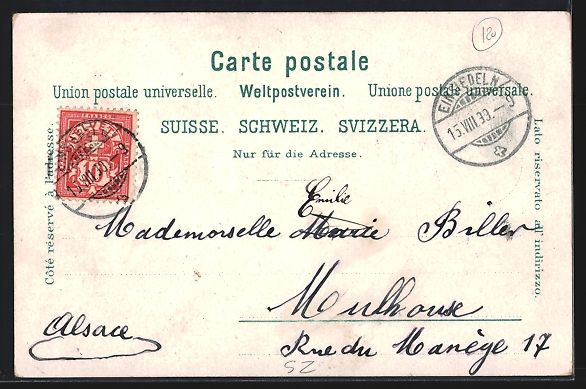 120
Carte postale
Union postale universelle. Weltpostverein. Unione postale universale.
SUISSE. SCHWEIZ. SVIZZERA.
Nur für die Adresse.
Côté réservé à l'adresse.
Lato riservato all'indirizzo.
EINSIEDELN
FRANCO
10
EINSIEDELN
Emilie
Mademoiselle Marie Biller
Mulhouse
Alsace
Rue du Manège 17
SZ